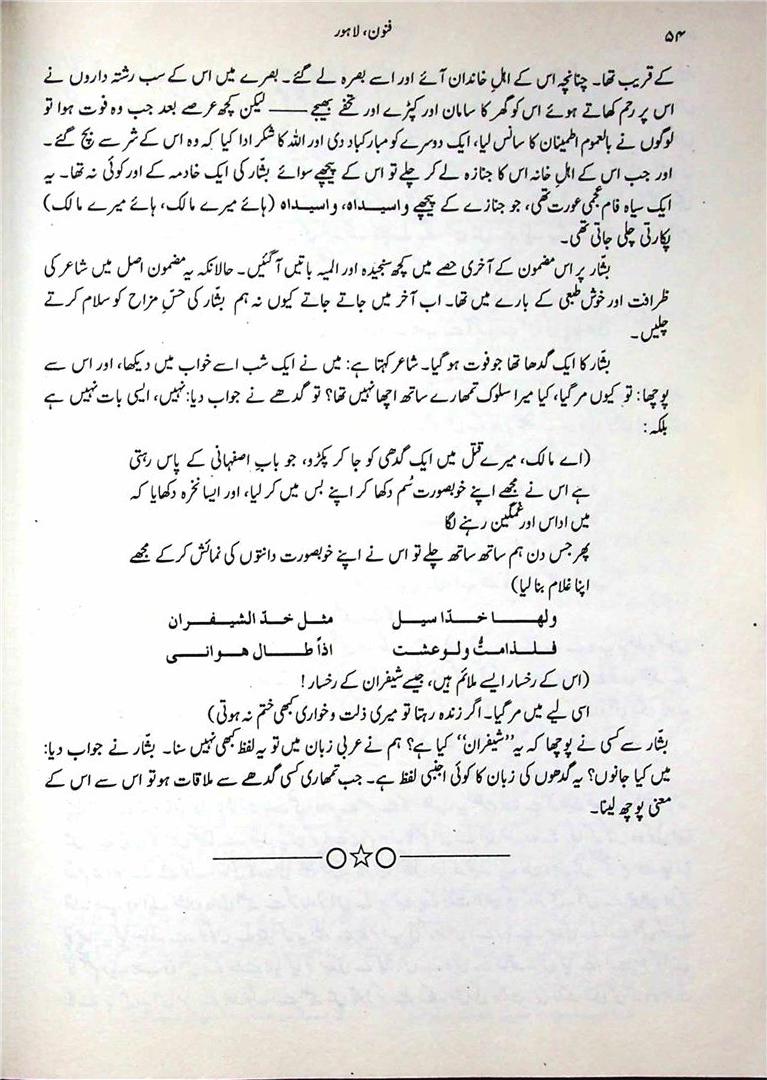 ۵۴
فنون، لاہور
کے قریب تھا۔ چنانچہ اس کے اہلِ خاندان آئے اور اسے بصرہ لے گئے۔ بصرے میں اس کے سب رشتہ داروں نے
اس پر رحم کھاتے ہوئے اس کو گھر کا سامان اور کپڑے اور تحفے بھیجے —— لیکن کچھ عرصے بعد جب وہ فوت ہوا تو
لوگوں نے بالعموم اطمینان کا سانس لیا، ایک دوسرے کو مبارکباد دی اور اللہ کا شکر ادا کیا کہ وہ اس کے شر سے بچ گئے۔
اور جب اس کے اہلِ خانہ اس کا جنازہ لے کر چلے تو اس کے پیچھے سوائے بشّار کی ایک خادمہ کے اور کوئی نہ تھا۔ یہ
ایک سیاہ فام عجمی عورت تھی، جو جنازے کے پیچھے واسیداہ، واسیداہ (ہائے میرے مالک، ہائے میرے مالک)
پکارتی چلی جاتی تھی۔
بشّار پر اس مضمون کے آخری حصے میں کچھ سنجیدہ اور المیہ باتیں آ گئیں۔ حالانکہ یہ مضمون اصل میں شاعر کی
ظرافت اور خوش طبعی کے بارے میں تھا۔ اب آخر میں جاتے جاتے کیوں نہ ہم بشّار کی حسِّ مزاح کو سلام کرتے
چلیں۔
بشّار کا ایک گدھا تھا جو فوت ہو گیا۔ شاعر کہتا ہے: میں نے ایک شب اسے خواب میں دیکھا، اور اس سے
پوچھا: تو کیوں مر گیا، کیا میرا سلوک تمھارے ساتھ اچھا نہیں تھا؟ تو گدھے نے جواب دیا: نہیں، ایسی بات نہیں ہے
بلکہ:
(اے مالک، میرے قتل میں ایک گدھی کو جا کر پکڑو، جو بابِ اصفہانی کے پاس رہتی
ہے اس نے مجھے اپنے خوبصورت سُم دکھا کر اپنے بس میں کر لیا، اور ایسا نخرہ دکھایا کہ
میں اداس اور غمگین رہنے لگا
پھر جس دن ہم ساتھ ساتھ چلے تو اس نے اپنے خوبصورت دانتوں کی نمائش کر کے مجھے
اپنا غلام بنا لیا)
ولھا خدّا سیل مثل خدّ الشیفران
فلذامتُّ ولو عشت اذاً طال ھوانی
(اس کے رخسار ایسے ملائم ہیں، جیسے شیفران کے رخسار!
اسی لیے میں مر گیا۔ اگر زندہ رہتا تو میری ذلت و خواری کبھی ختم نہ ہوتی)
بشّار سے کسی نے پوچھا کہ یہ ”شیفران“ کیا ہے؟ ہم نے عربی زبان میں تو یہ لفظ کبھی نہیں سنا۔ بشّار نے جواب دیا:
میں کیا جانوں؟ یہ گدھوں کی زبان کا کوئی اجنبی لفظ ہے۔ جب تمھاری کسی گدھے سے ملاقات ہو تو اس سے اس کے
معنی پوچھ لینا۔